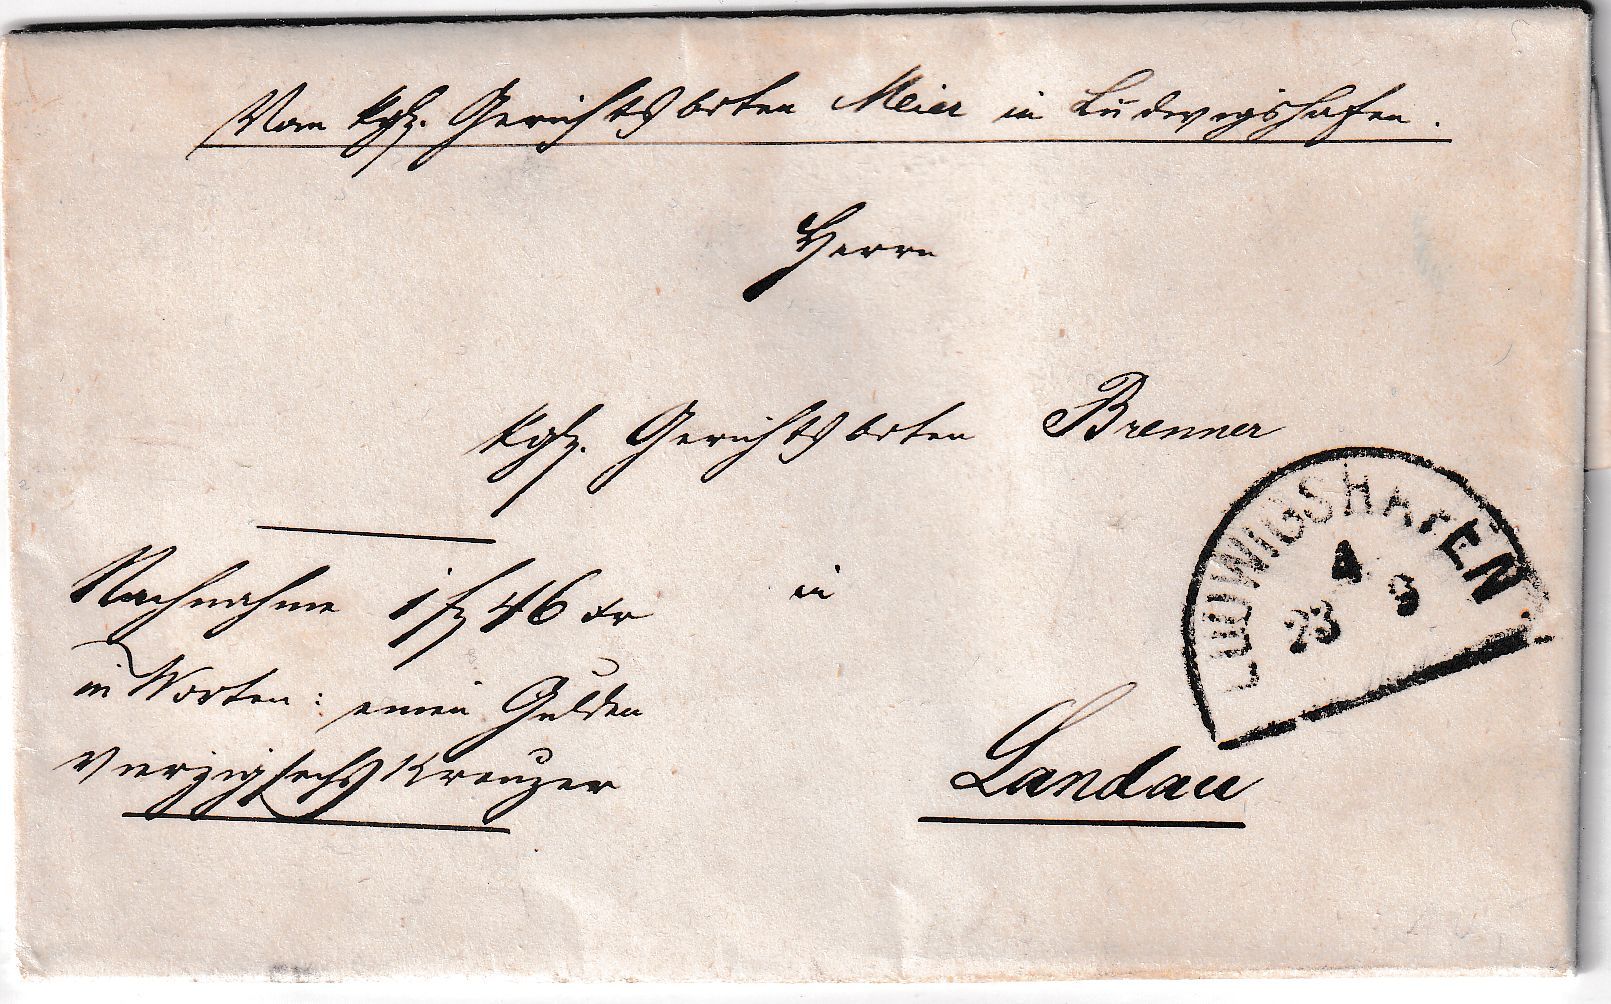 Vom kgl. Gerichtsboten Meier in Ludwigshafen.
Herrn
kgl. Gerichtsboten Brenner
in
Landau
Nachnahme 1 fl 46 kr
in Worten: einen Gulden
vierzigsechs Kreuzer
LUDWIGSHAFEN
4
23 9